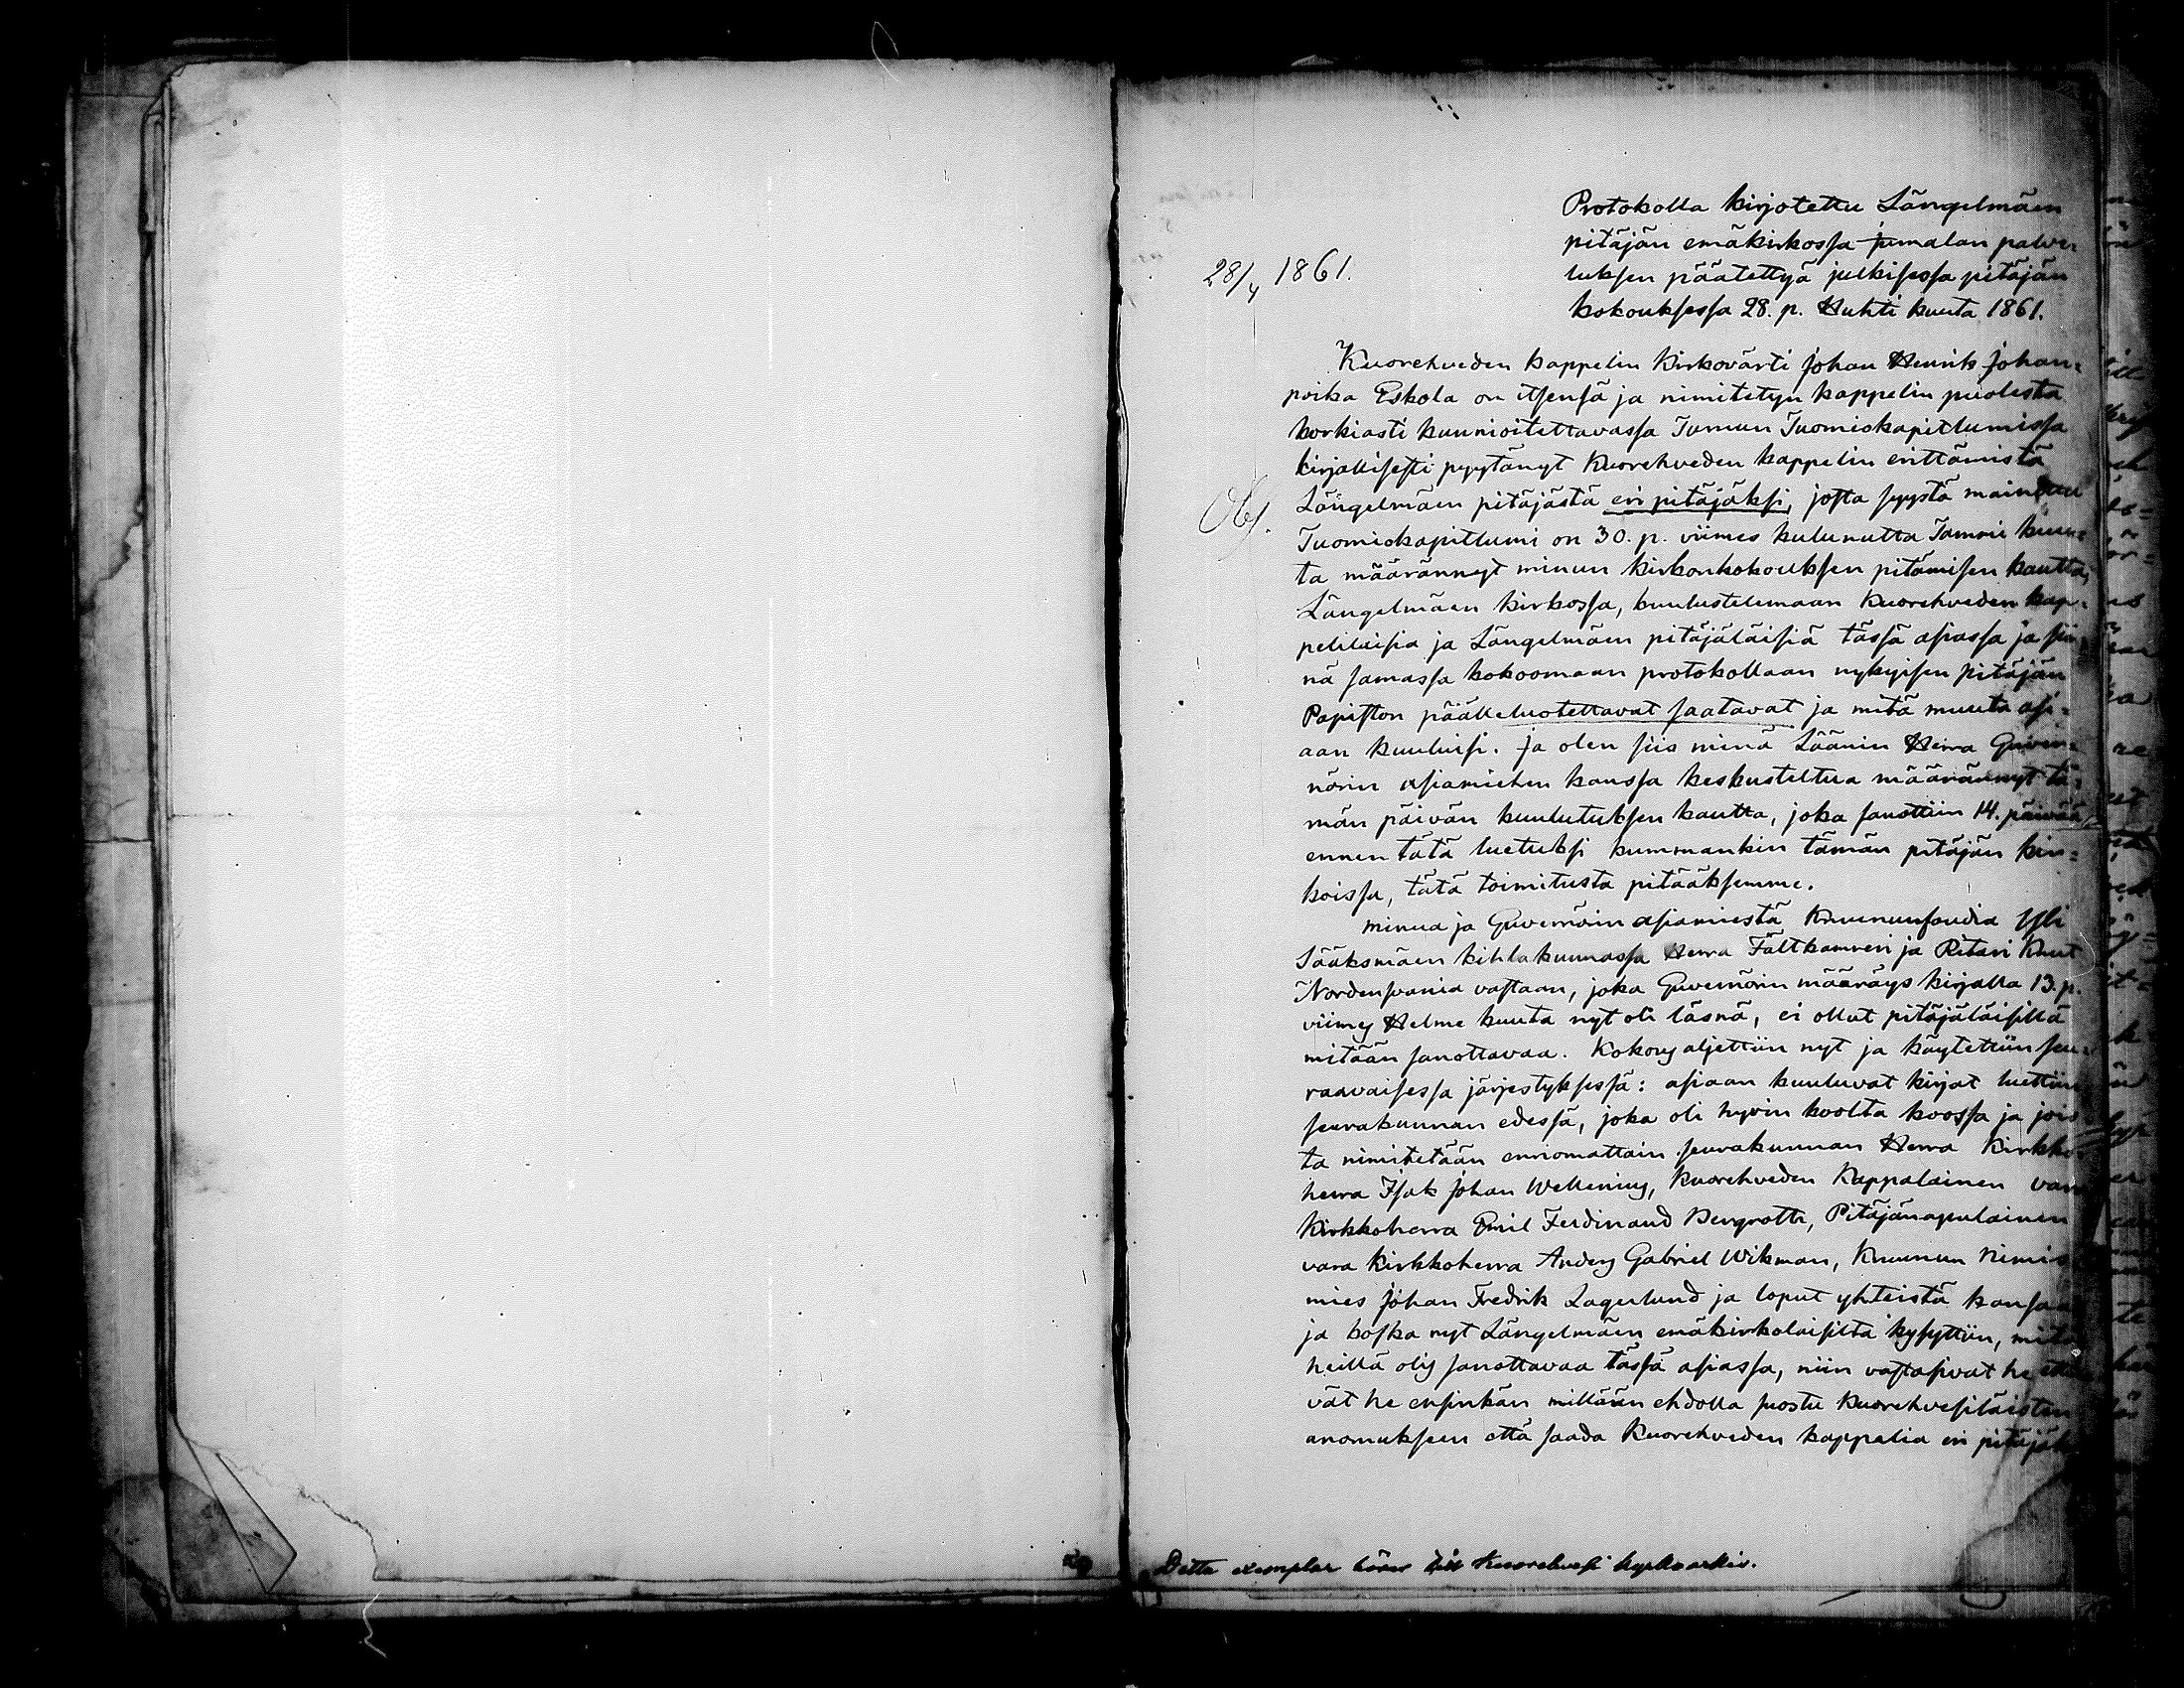 Protokolla kirjotettu Längelmäen
pitäjän emäkirkossa jumalan palve=
luksen päätettyä julkisessa pitäjän
28/4 1861.
kokouksessa 28. p. Huhti kuuta 1861.
Kuorehveden kappelin Kirkovärti Johan Henrik Johan=
poika Eskola on itsensä ja nimitetyn kappelin puolesta
korkiasti kunnioitettavassa Turnun Tuomiokapitlumissa
kirjallisesti pyytänyt Kuorehveden kappelin erittämistä
Obs. Längelmäen pitäjästä eri pitäjäksi, josta syystä mainittu
Tuomiokapitlumi on 30. p. viimes kulunutta Tammi kuu=
ta määrännyt minun kirkonkokouksen pitämisen kautta,
Längelmäen kirkossa, kuulustelemaan Kuorehveden kap=
peliläisiä ja Längelmäen pitäjäläisiä tässä asiassa ja sii=
nä samassa kokoomaan protokollaan nykyisen pitäjän
Papiston päälleluotettavat saatavat ja mitä muuta asi=
aan kuuluisi. Ja olen siis minä Läänin Herra Guver=
nörin asiamiehen kanssa keskusteltua määrännyt tä=
män päivän kuulutuksen kautta, joka sanottiin 14. päivää
ennen tätä luetuksi kummankin tämän pitäjän kir=
koissa, tätä toimitusta pitääksemme.
Minua ja Guvernörin asiamiestä Kruununfoudia Yli
Sääksmäen kihlakunnassa Herra Fältkamreri ja Ritari Knut
Nordensvania vastaan, joka Guvernörin määräys kirjalla 13. p.
viimes Helme kuuta nyt oli läsnä, ei ollut pitäjäläisillä
mitään sanottavaa. Kokous aljettiin nyt ja käytettiin seu=
raavaisessa järjestyksessä: asiaan kuuluvat kirjat luettiin
seurakunnan edessä, joka oli hyvin koolta koossa ja jois=
ta nimitetään enniomattain seurakunnan Herra Kirkko=
herra Isak Johan Wellenius, Kuorehveden Kappalainen vara
Kirkkoherra Emil Ferdinand Bergroth, Pitäjänapulainen
vara Kirkkoherra Anders Gabriel Wikman, Kruunun Nimis
mies Johan Fredrik Lagerlund ja loput yhteistä kansaa
ja koska nyt Längelmäen emäkirkolaisilta kysyttiin, mitä
heillä olis sanottavaa tässä asiassa, niin vastasivat he ettei
vät he ensinkän millään ehdolla suostu Kuorehvesiläisten
anomukseen että saada Kuorehveden kappelia eri pitäjäk
Detta exemplar hörer till Kuorehvesi kyrkoarkiv.